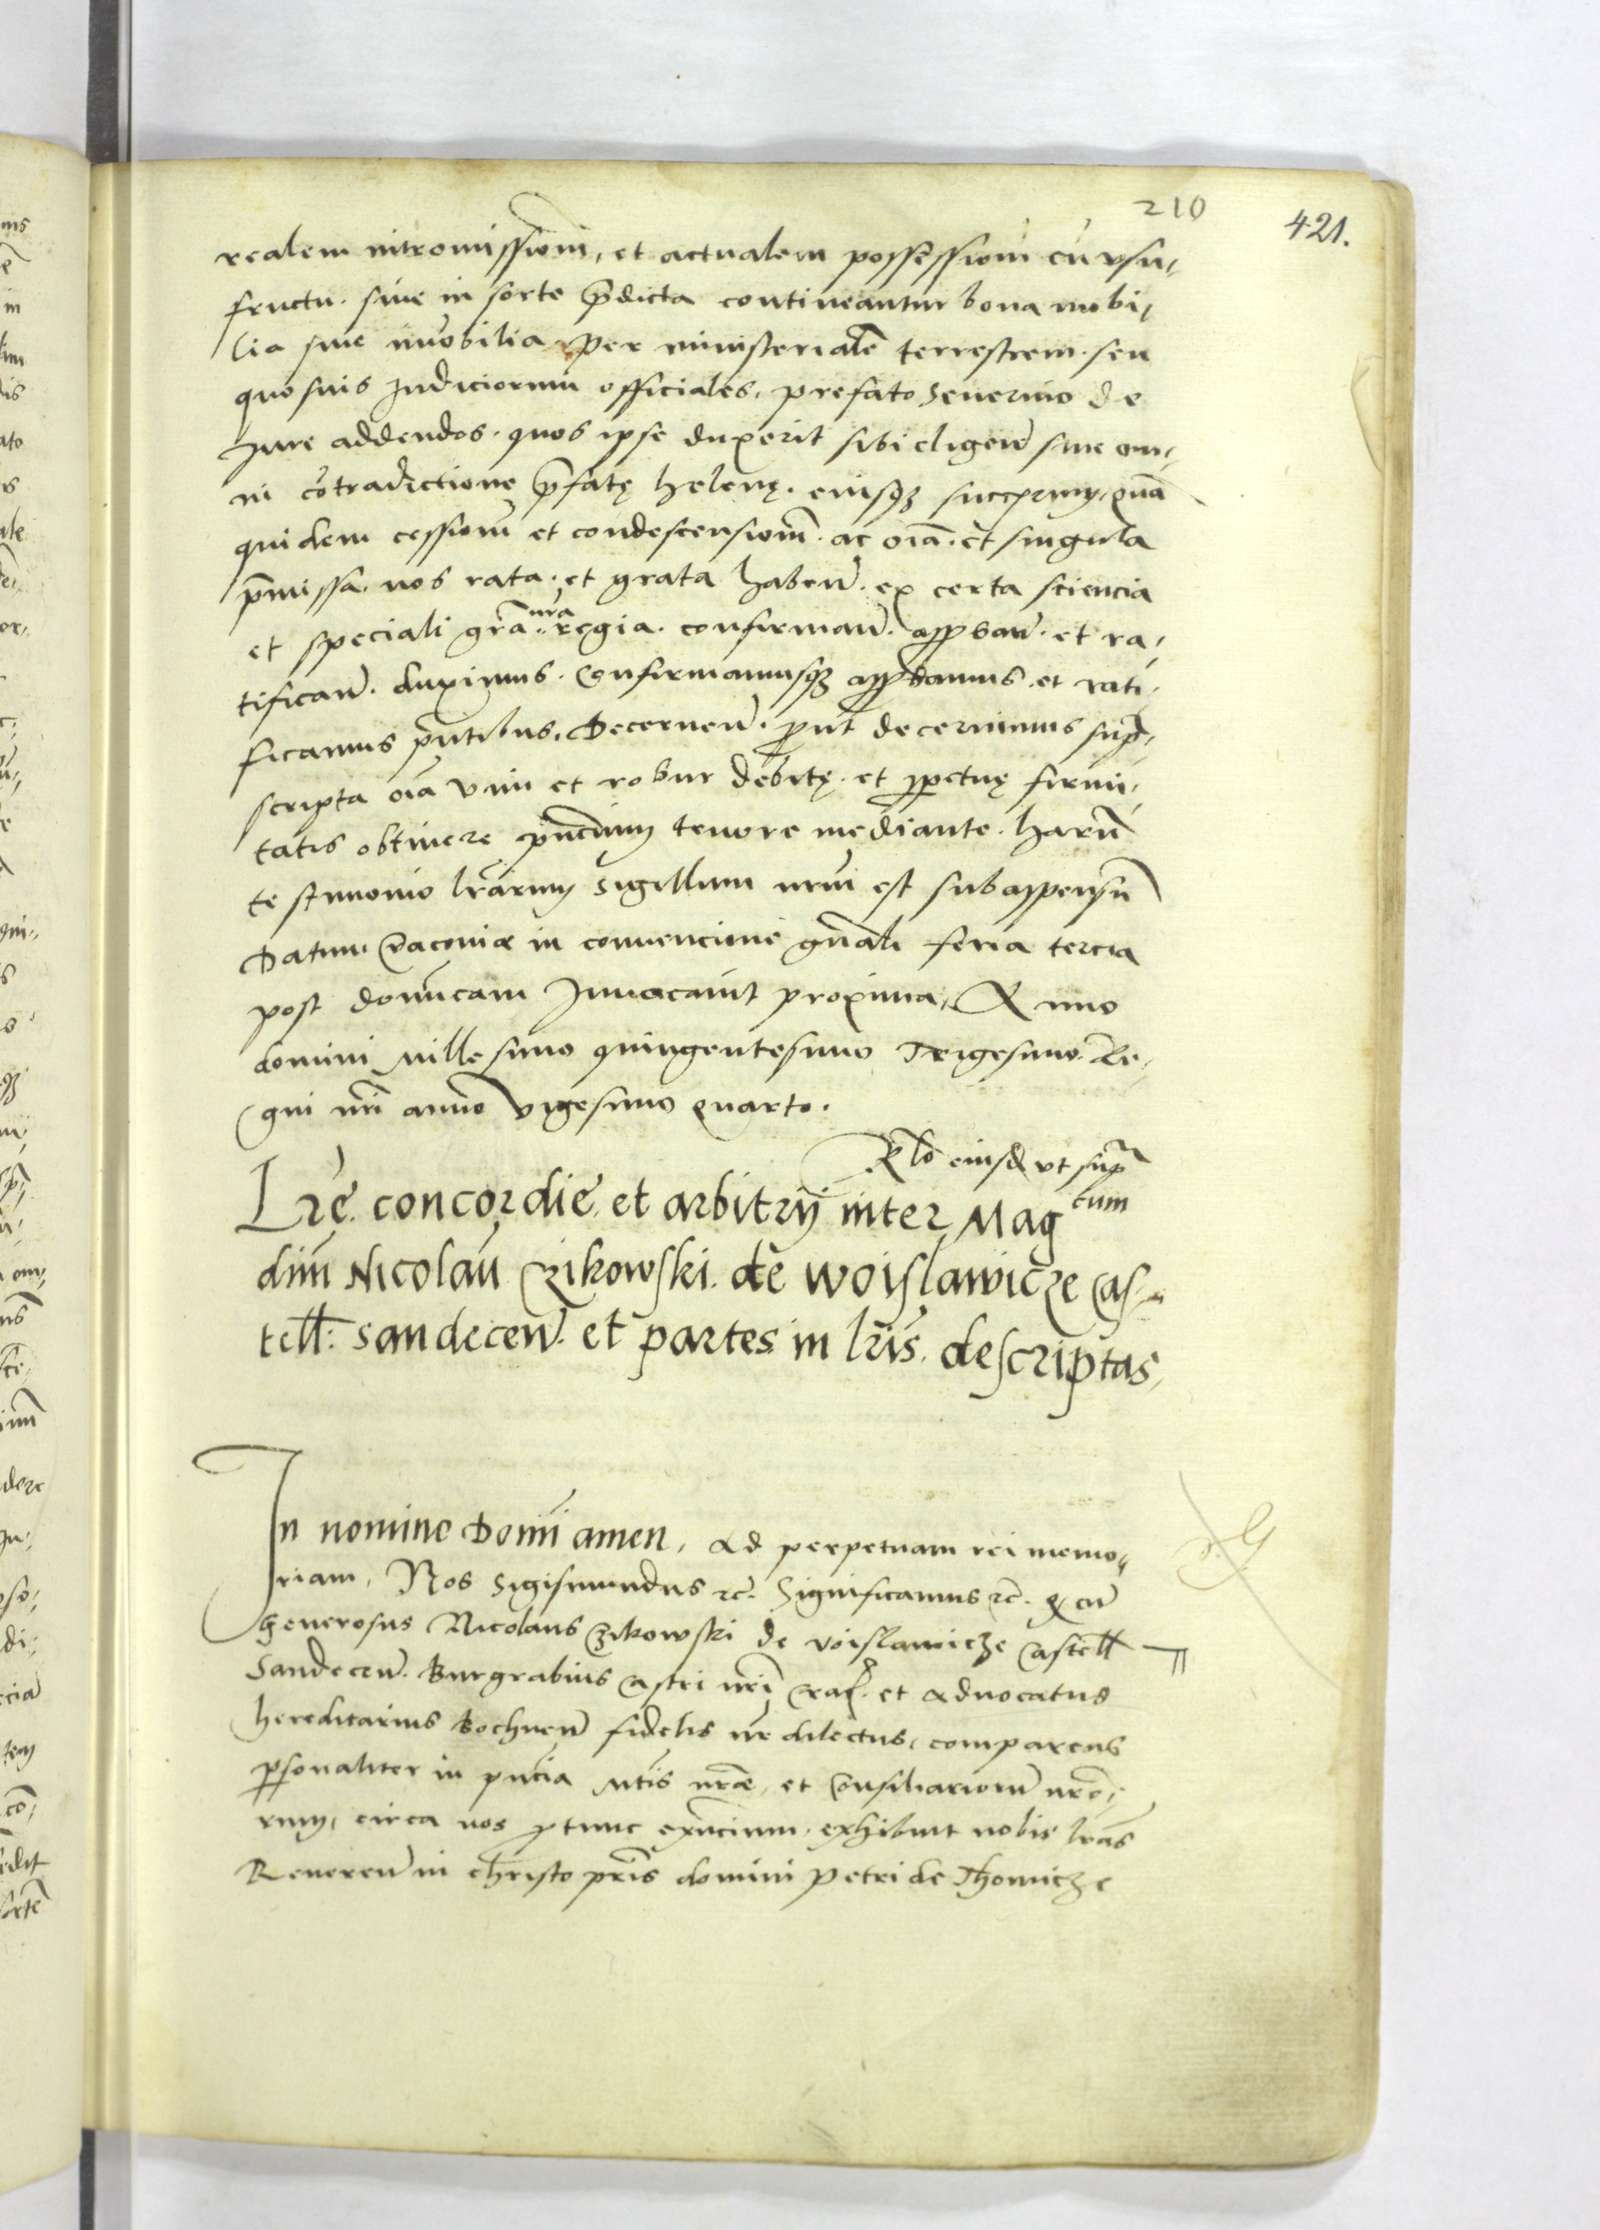 210
421.
realem intromissionem, et actualem possessionem cũ usu-
fructu. sive in sorte p̃dicta contineantur bona mobi-
lia sive im̃obilia per ministerialẽ terrestrem. seu
quosuis Judiciorum officiales. prefato Severino de
Jure addendos. quos ipse duxerit sibi eligen̄ sine om-
ni cõtradictione p̃fatę helenę. eiusqȝ succorum, quã
quidem cessionẽ et condescensionẽ. ac oĩa. et singula
p̃missa. nos rata. et grata haben̄. ex certa sciencia
et speciali gr̃a nr̃a regia. confirman̄. app̃ban̄. et ra-
tifican̄. duximus. Confirmamusqȝ app̃bamus. et rati-
ficamus p̃ntibus. Decernen̄. p̃ut decernimus sup̃-
scripta oĩa vim et robur debitę. et p̱petuę firmi-
tatis obtinere p̃ncium tenore mediante. harũ
testimonio lr̃arum Sigillum nr̃m est subappensũ
Datum Cracoviæ in convencione gñali feria tercia
post domĩcam Invocavit proxima, Anno
domini Millesimo quingentesimo Trigesimo. Re-
gni nr̃i anno vigesimo quarto.
Rl̃o eiusd̃ vt sup̃
Lr̃e concordie et arbitrij inter Magcum
dñm Nicolaũ Czikowski. de Woislawicze Cas-
tell: Sandecen̄. et partes in lr̃is. descriptas
In nomine Domĩ amen, Ad perpetuam rei memo-
riam, Nos Sigismundus rc̃. Significamus rc̃. Q̃ cũ
generosus Nicolaus Czikowski de voislawicze Castell
Sandecen̄. Burgrabius Castri nr̃i Crac̃. et Advocatus
hereditarius Bochnen̄ fidelis nr̃ dilectus, comparens
p̱sonaliter in p̃ncia Mtis nr̃æ, et Consiliariorũ nr̃o-
rum, circa nos p̱tunc ex̃ncium. exhibuit nobis lr̃as
Reveren̄ in christo pr̃is domini Petri de Thomicze